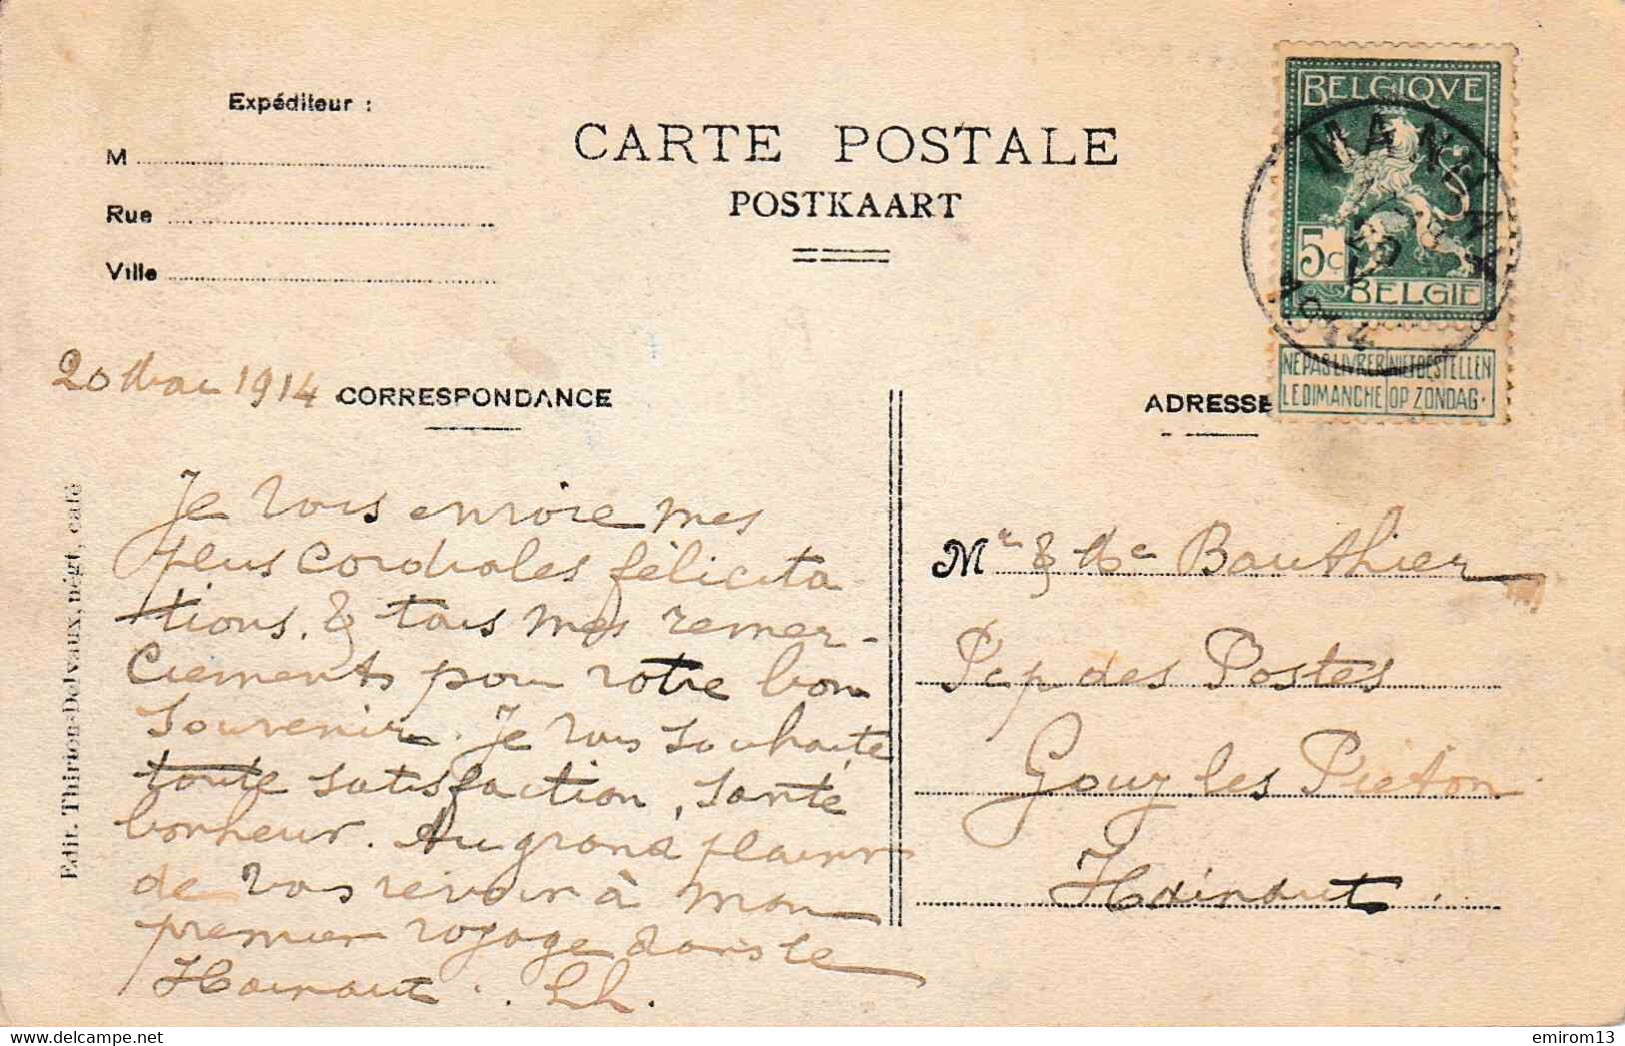 Expéditeur :
M
Rue
Ville
CARTE POSTALE
POSTKAART
BELGIQUE
5c
BELGIË
MANHAY
1914
NE PAS LIVRER NIET BESTELLEN
LE DIMANCHE OP ZONDAG.
20 Mai 1914
CORRESPONDANCE
ADRESSE
Edit. Thirion-Delvaux, négt, café
Je vous envoie mes
plus cordiales félicita
tions. & tous mes remer-
ciements pour votre bon
souvenir. Je vous souhaite
toute satisfaction, santé
bonheur. Au grand plaisir
de vous revoir à mon
premier voyage dans le
Hainaut.
Mr & Me Bauthier
Pep des Postes
Gouy les Pieton
Hainaut.
www.delcampe.net
emirom13